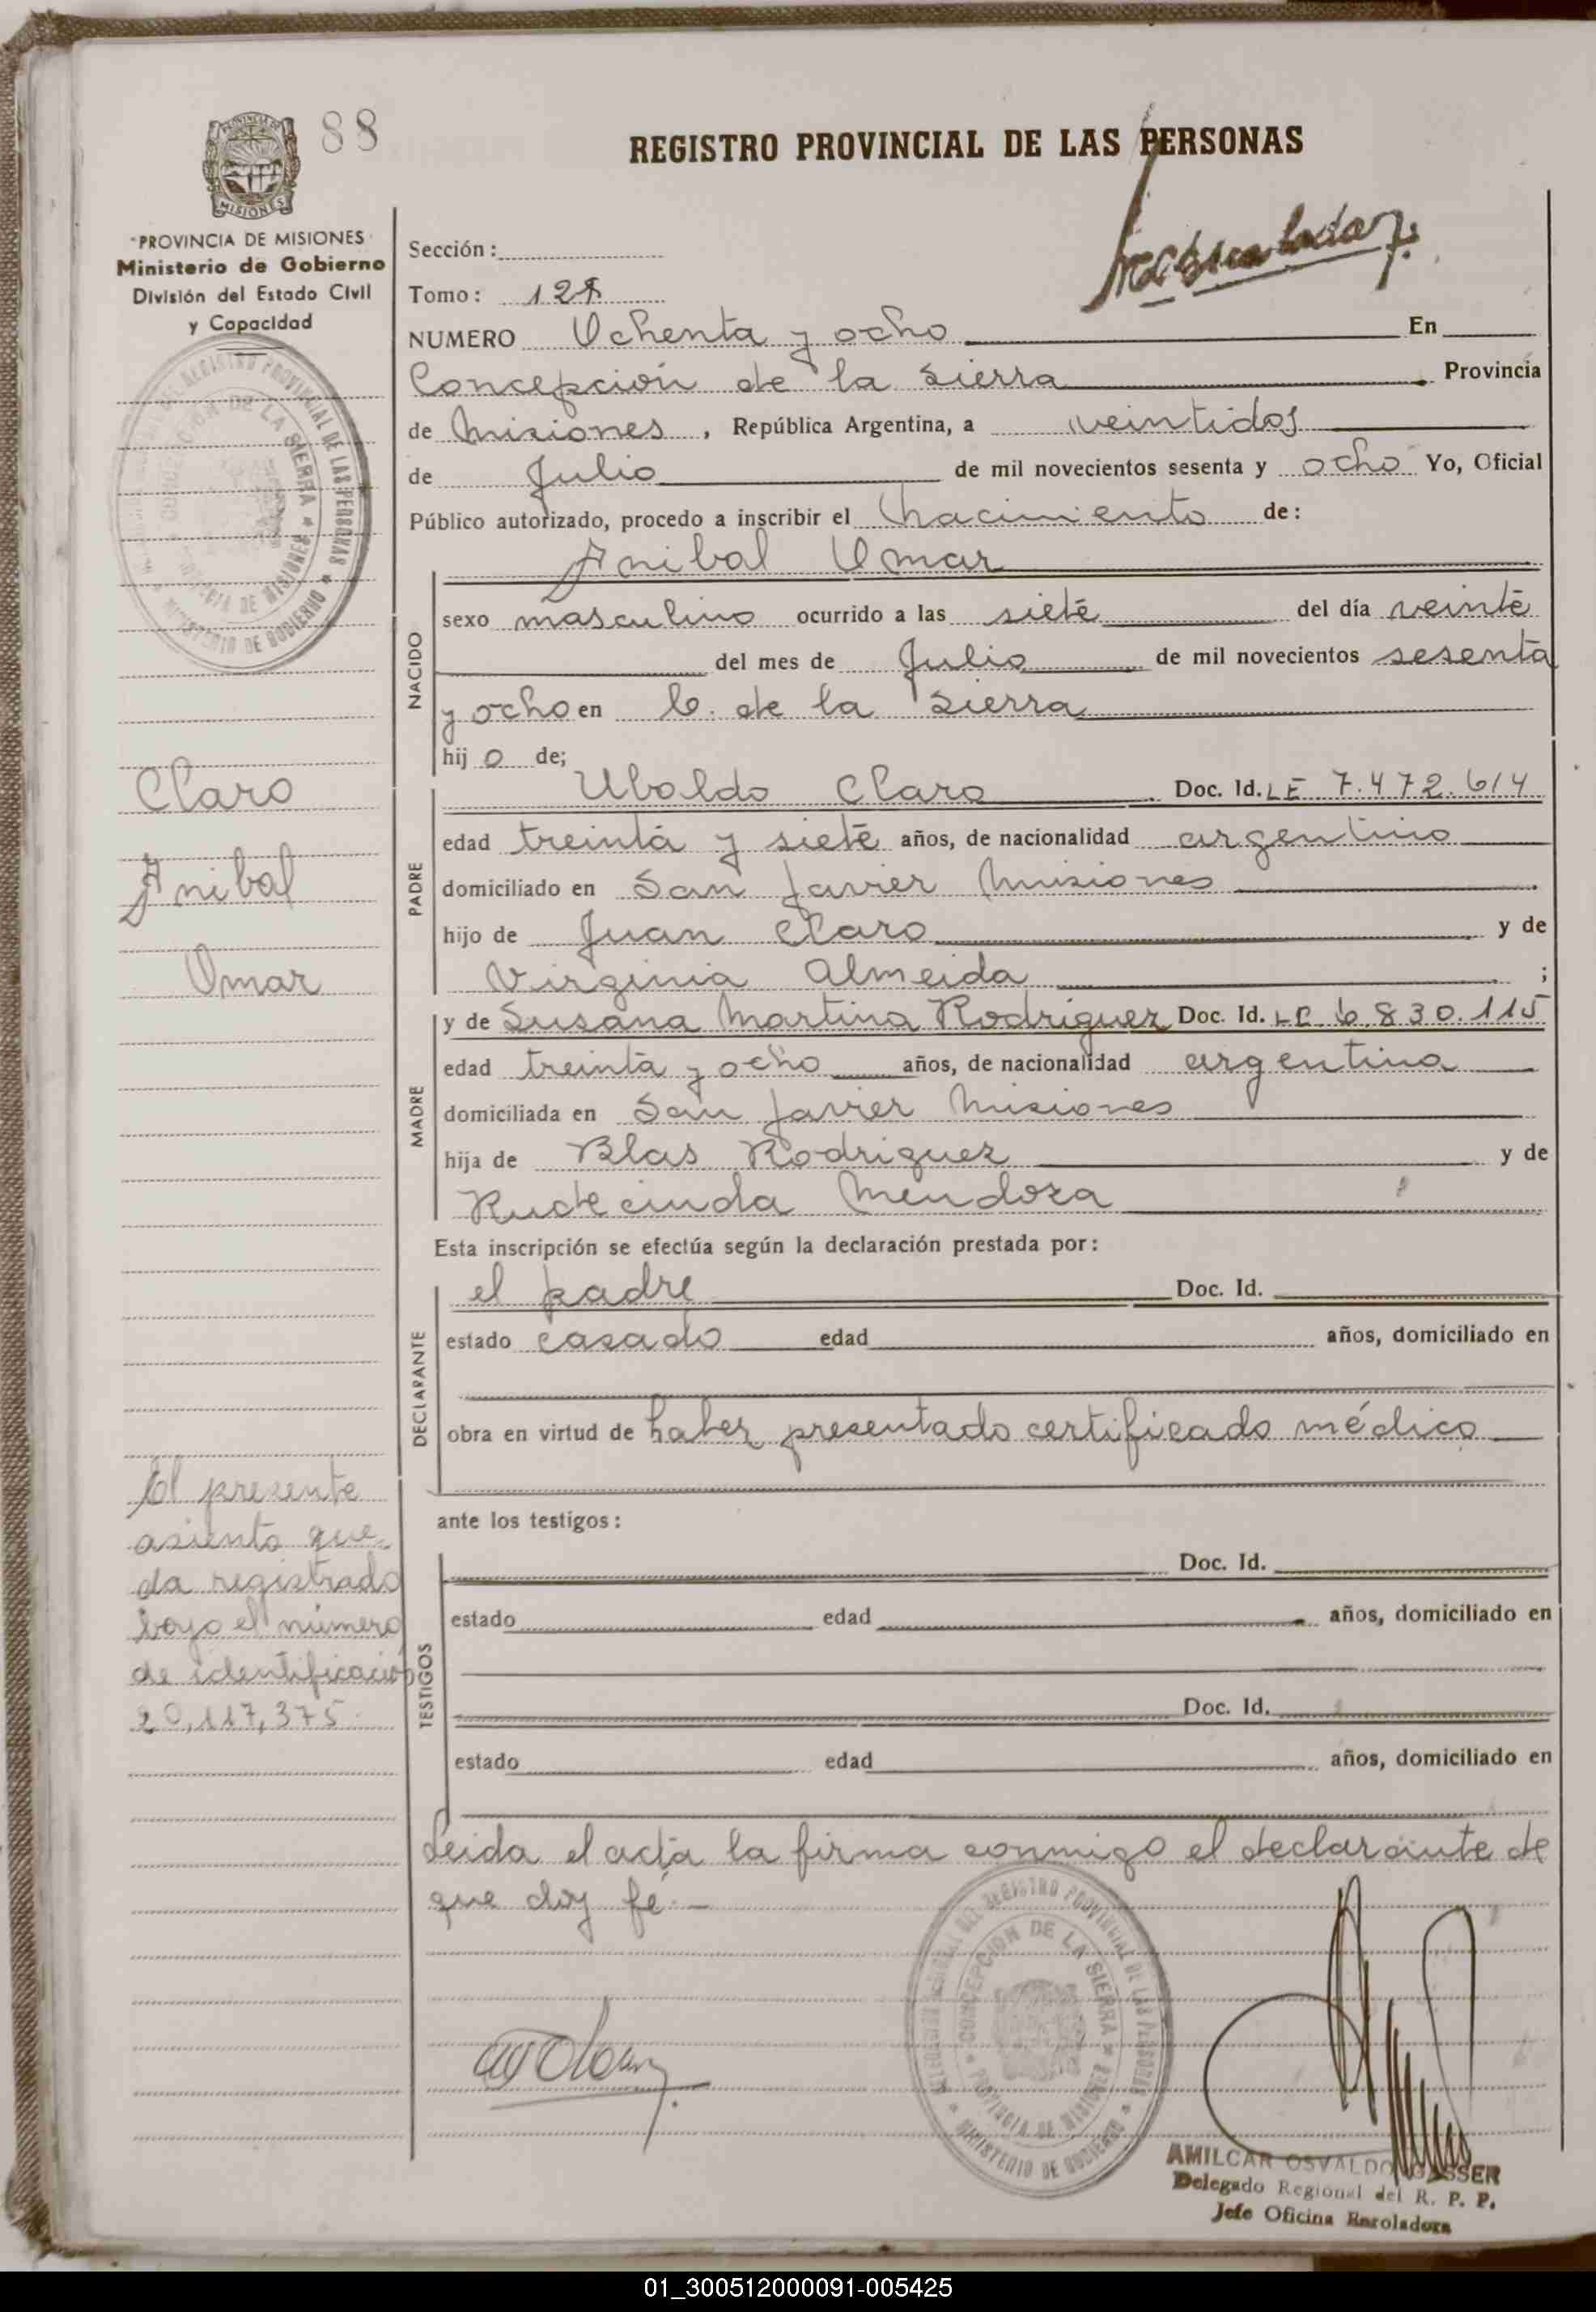 88
REGISTRO PROVINCIAL DE LAS PERSONAS
PROVINCIA DE
MISIONES
PROVINCIA DE MISIONES
Ministerio de Gobierno
División del Estado Civil
y Capacidad
Sección:
Tomo:
NUMERO Ochenta y ocho En
Concepción de la Sierra Provincia
de Misiones, República Argentina, a veintidos
de Julio de mil novecientos sesenta y ocho Yo, Oficial
Público autorizado, procedo a inscribir el Nacimiento de:
Anibal Omar
NACIDO
sexo masculino ocurrido a las siete del día veinte
del mes de Julio de mil novecientos sesenta
y ocho en C. de la Sierra
hijo de;
PADRE
Ubaldo Claro Doc. Id. LE 7.472.614
edad treinta y siete años, de nacionalidad argentino
domiciliado en San Javier Misiones
hijo de Juan Claro y de
Virginia Almeida ;
MADRE
y de Susana Martina Rodriguez Doc. Id. LC 6.830.115
edad treinta y ocho años, de nacionalidad argentina
domiciliada en San Javier Misiones
hija de Blas Rodriguez y de
Rudecinda Mendoza
Esta inscripción se efectúa según la declaración prestada por:
DECLARANTE
el padre Doc. Id.
estado casado edad años, domiciliado en
obra en virtud de haber presentado certificado médico
ante los testigos:
TESTIGOS
Doc. Id.
estado edad años, domiciliado en
Doc. Id.
estado edad años, domiciliado en
Leida el acta la firma conmigo el declarante de
que doy fé.-
Claro
Anibal
Omar
El presente
asiento que-
da registrado
bajo el número
de identificación
20,117,375
CONCEPCION DE LA SIERRA
PROVINCIA DE MISIONES
MINISTERIO DE GOBIERNO
REGISTRO PROVINCIAL DE LAS PERSONAS
CONCEPCION DE LA SIERRA
PROVINCIA DE MISIONES
MINISTERIO DE GOBIERNO
AMILCAR OSVALDO GASSER
Delegado Regional del R. P. P.
Jefe Oficina Enroladora
01_300512000091-005425